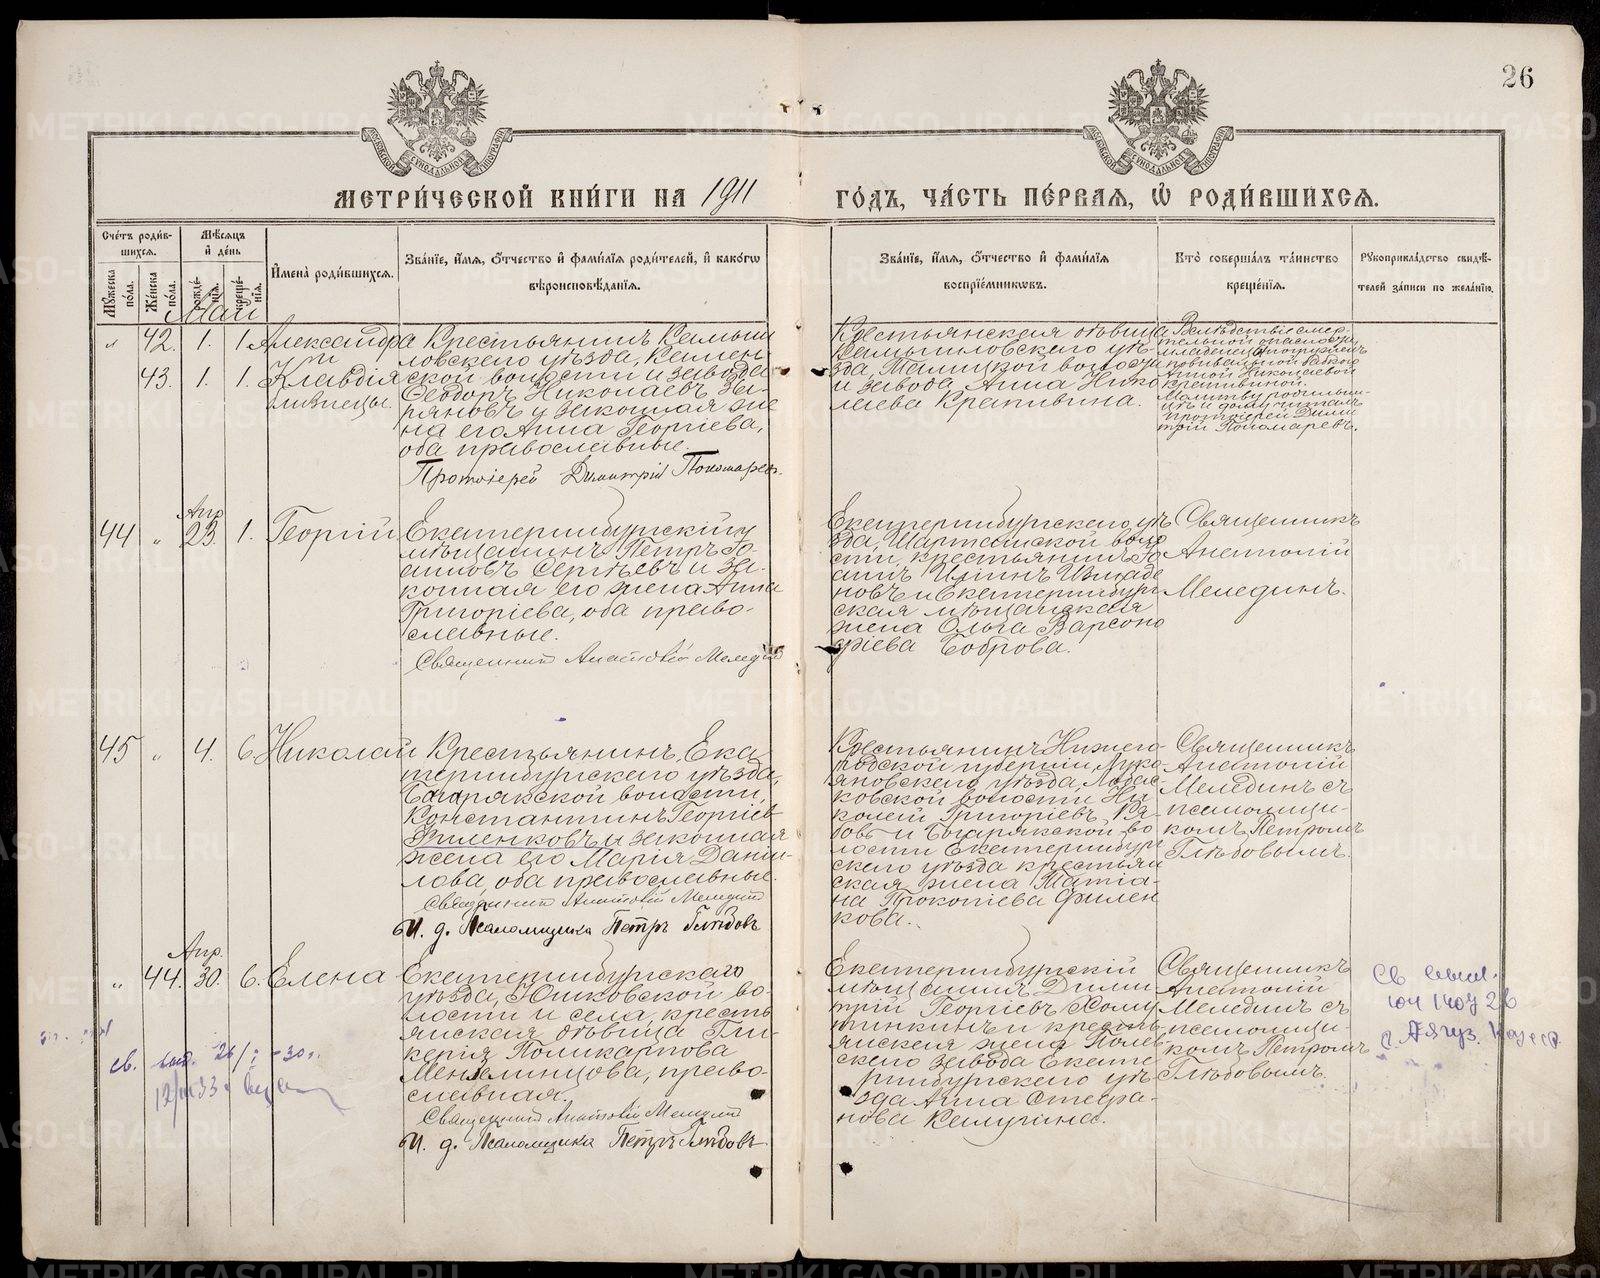 26
МЕТРИ́ЧЕСКОЙ КНИ́ГИ НА 1911 ГО́ДЪ, ЧА́СТЬ ПЕ́РВАЯ, Ѡ РОДИ́ВШИХСЯ.
Сче́тъ роди́в-
шихся.
Мꙋ́жеска по́ла.
Же́нска по́ла.
Мѣ́сяцъ
и҆ де́нь
рожде́-
нїя.
креще́-
нїя.
И҆мена̀ роди́вшихся.
Зва́нїе, и҆́мя, ѻ҆́тчество и҆ фами́лїя роди́телей, и҆ како́гѡ
вѣроисповѣ́данїя.
Зва́нїе, и҆́мя, ѻ҆́тчество и҆ фами́лїя
воспрїе́мникѡвъ.
Кто̀ соверша́лъ та́инство
креще́нїя.
Рꙋкоприкла́дство свидѣ́-
телей за́писи по жела́нїю.
Май
„ 42. 1. 1. Александра
и
43. 1. 1. Клавдія
близнецы.
Крестьянинъ Камыш
ловскаго уѣзда, Камен
ской волости и завода
Ѳеодоръ Николаевъ Зы-
ряновъ и законная же
на его Анна Георгіева,
оба православные.
Протоіерей Димитрій Пономаревъ.
Крестьянская дѣвица
Камышловскаго уѣ-
зда,
волости
и завода Анна Нико
лаева Крапивина.
Вслѣдствіе смер-
тельной опасности
младенцы погружены
повивальной бабкою
Анной Николаевой
Крапивиной.
Молитву родильни-
цѣ и дому читалъ
Протоіерей Дими
трій Пономаревъ.
Апр.
44 „ 23. 1. Георгій
Екатеринбургскій
мѣщанинъ Петръ Іо-
анновъ Сергѣевъ и за-
конная его жена Анна
Григоріева, оба право-
славные.
Священникъ Анатолій Меледин
Екатеринбургскаго уѣ
зда, Шарташской воло
сти крестьянинъ Іо
аннъ Ильинъ
новъ и Екатеринбург
ская мѣщанская
жена Ольга Варсоно
фіева Боброва.
Священникъ
Анатолій
Мелединъ.
45 „ 4. 6. Николай
Крестьянинъ, Ека
теринбургскаго уѣзда,
Багарякской волости,
Константинъ Георгіев
Филенковъ и законная
жена его Марія Даніи-
лова, оба православные.
Священникъ Анатолій Меледин
И. д. Псаломщика Петръ Глѣбовъ
Крестьянинъ Нижего-
родской губерніи, Луко-
яновскаго уѣзда,
ковской волости Ни
колай Григоріевъ Ря-
бовъ и Багарякской во
лости Екатеринбург
скаго уѣзда крестьян
ская жена Татіа-
на Прокопіева Филен
кова.
Священникъ
Анатолій
Мелединъ съ
псаломщи-
комъ Петромъ
Глѣбовымъ.
Апр.
„ 44. 30. 6. Елена
Екатеринбургскаго
уѣзда, Юшковской во-
лости и села, кресть
янская дѣвица Гли-
керія Поликарпова
Мензелинцова, право-
славная.
Священникъ Анатолій Меледин
И. д. Псаломщика Петръ Глѣбовъ
Екатеринбургскій
мѣщанинъ Дими
трій Георгіевъ Хому
тинкинъ и кресть-
янская жена Полев-
скаго завода Екате
ринбургскаго уѣ
зда Анна Стефа-
нова Калугина.
Священникъ
Анатолій
Мелединъ съ
псаломщи-
комъ Петромъ
Глѣбовымъ.
METRIKI.GASO-URAL.RU